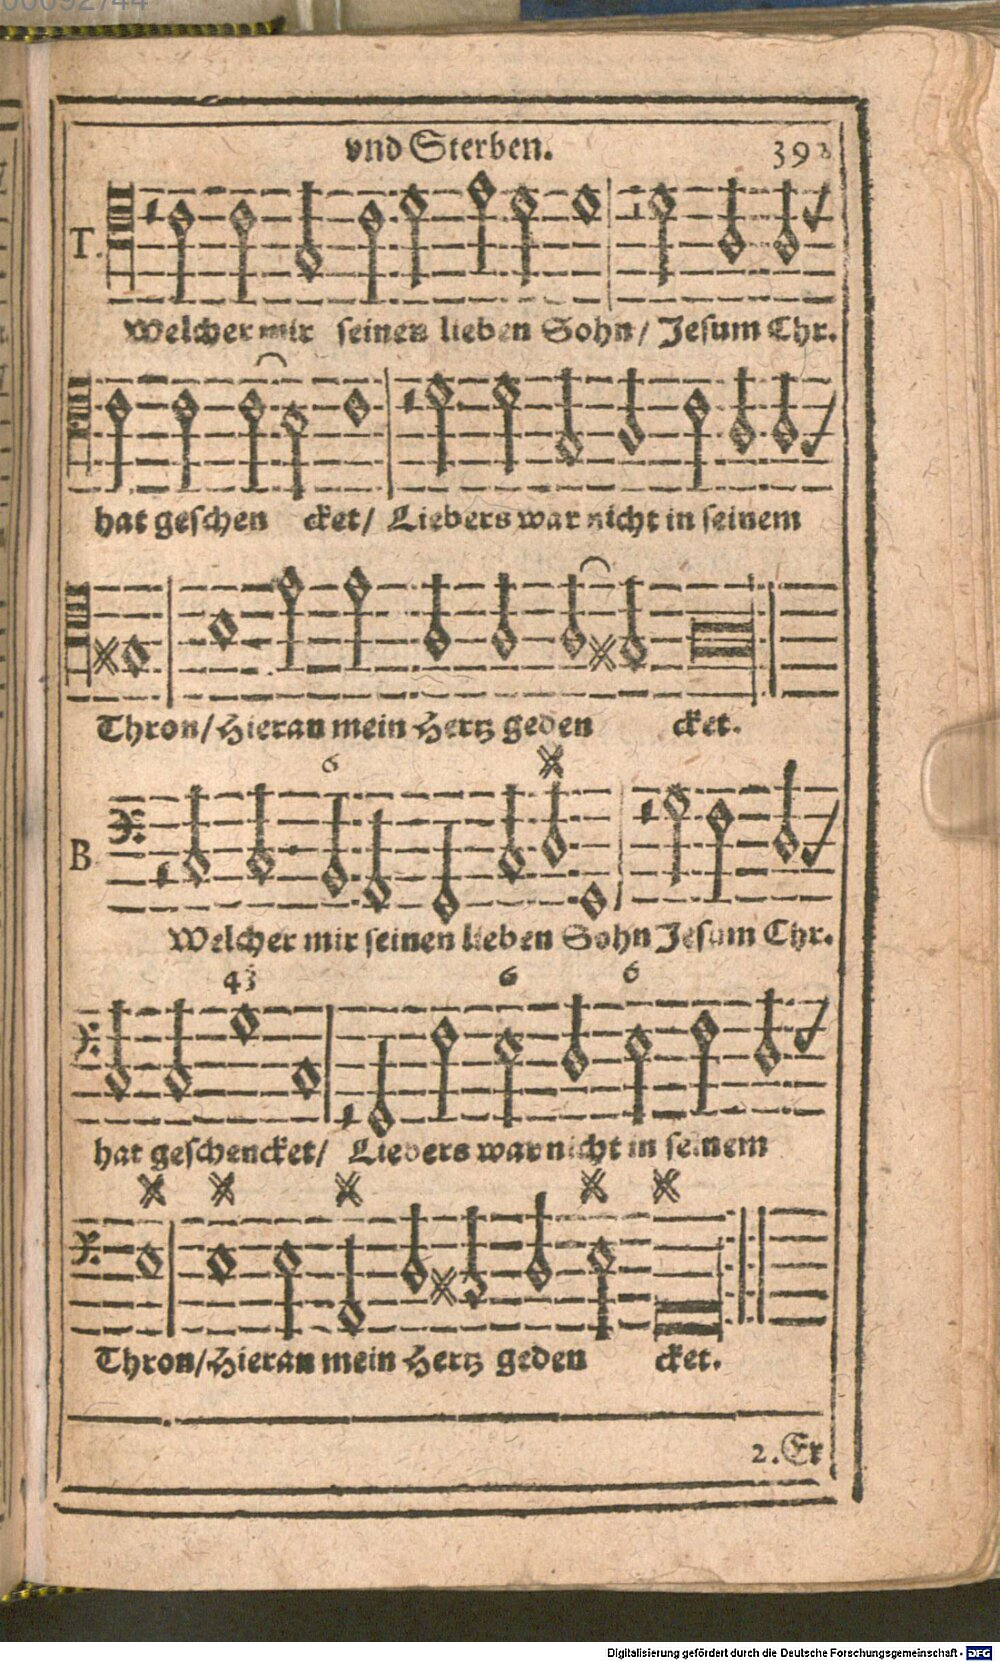 00092744
vnd Sterben. 393
T.
Welcher mir seinen lieben Sohn / Jesum Chr.
hat geschen cket / Liebers war nicht in seinem
Thron / Hieran mein Hertz geden cket.
6
B
Welcher mir seinen lieben Sohn Jesum Chr.
43 6 6
hat geschencket / Liebers war nicht in seinem
Thron / Hieran mein Hertz geden cket.
2. Er
Digitalisierung gefördert durch die Deutsche Forschungsgemeinschaft - DFG